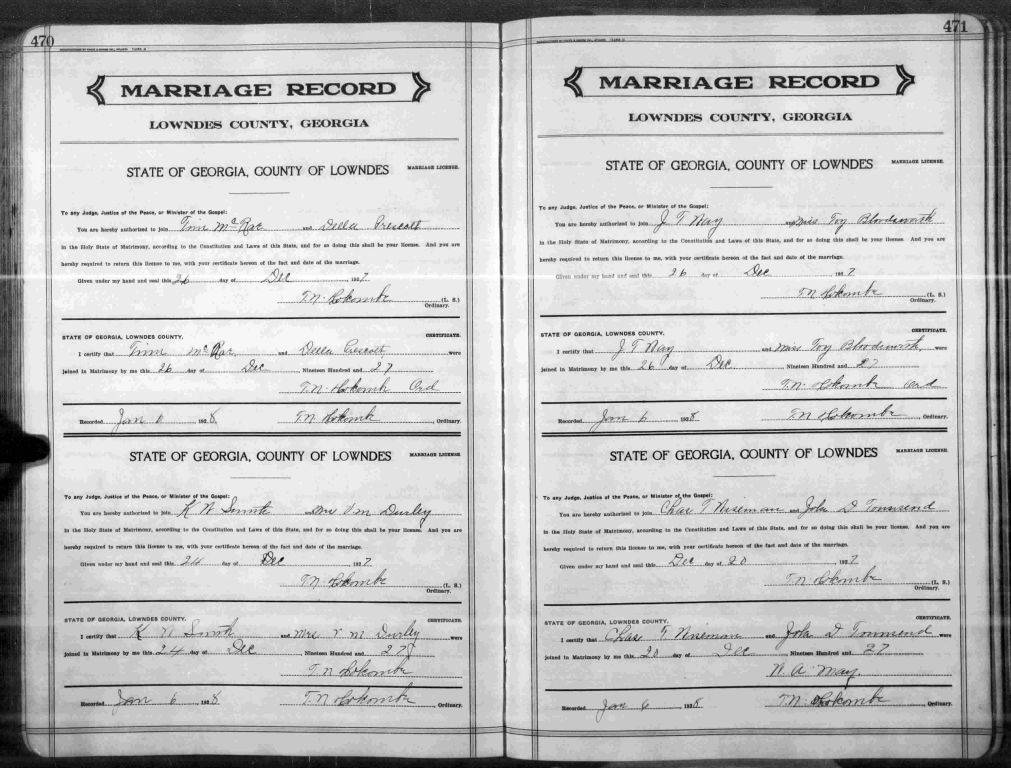 470
MARRIAGE RECORD
LOWNDES COUNTY, GEORGIA
STATE OF GEORGIA, COUNTY OF LOWNDES MARRIAGE LICENSE.
To any Judge, Justice of the Peace, or Minister of the Gospel:
You are hereby authorized to join Tim McRae and Della Prescott
in the Holy State of Matrimony, according to the Constitution and Laws of this State, and for so doing this shall be your license. And you are
hereby required to return this license to me, with your certificate hereon of the fact and date of the marriage.
Given under my hand and seal this 26 day of Dec 1927
T.N. Holcombe (L. S.)
Ordinary.
STATE OF GEORGIA, LOWNDES COUNTY. CERTIFICATE.
I certify that Tim McRae and Della Prescott were
joined in Matrimony by me this 26 day of Dec Nineteen Hundred and 27
T.N. Holcomb Ord
Recorded Jan 6 1928 T.N Holcomb, Ordinary.
STATE OF GEORGIA, COUNTY OF LOWNDES MARRIAGE LICENSE.
To any Judge, Justice of the Peace, or Minister of the Gospel:
You are hereby authorized to join K N Smith and Mrs V M Durley
in the Holy State of Matrimony, according to the Constitution and Laws of this State, and for so doing this shall be your license. And you are
hereby required to return this license to me, with your certificate hereon of the fact and date of the marriage.
Given under my hand and seal this 24 day of Dec 1927
T.N. Holcombe (L. S.)
Ordinary.
STATE OF GEORGIA, LOWNDES COUNTY. CERTIFICATE.
I certify that K N Smith and Mrs V M Durley were
joined in Matrimony by me this 24 day of Dec Nineteen Hundred and 27
T N Holcombe
Recorded Jan 6 1928 T.N Holcombe, Ordinary.
471
MARRIAGE RECORD
LOWNDES COUNTY, GEORGIA
STATE OF GEORGIA, COUNTY OF LOWNDES MARRIAGE LICENSE.
To any Judge, Justice of the Peace, or Minister of the Gospel:
You are hereby authorized to join J T Nay and Miss Toy Bloodsworth
in the Holy State of Matrimony, according to the Constitution and Laws of this State, and for so doing this shall be your license. And you are
hereby required to return this license to me, with your certificate hereon of the fact and date of the marriage.
Given under my hand and seal this 26 day of Dec 1927
T.N. Holcombe (L. S.)
Ordinary.
STATE OF GEORGIA, LOWNDES COUNTY. CERTIFICATE.
I certify that J T Nay and Miss Toy Bloodsworth, were
joined in Matrimony by me this 26 day of Dec Nineteen Hundred and 27
T.N. Holcomb Ord
Recorded Jan 6 1928 T.N Holcombe, Ordinary.
STATE OF GEORGIA, COUNTY OF LOWNDES MARRIAGE LICENSE.
To any Judge, Justice of the Peace, or Minister of the Gospel:
You are hereby authorized to join Chas T Wiseman and John D Townsend
in the Holy State of Matrimony, according to the Constitution and Laws of this State, and for so doing this shall be your license. And you are
hereby required to return this license to me, with your certificate hereon of the fact and date of the marriage.
Given under my hand and seal this Dec day of 20 1927
T.N. Holcombe (L. S.)
Ordinary.
STATE OF GEORGIA, LOWNDES COUNTY. CERTIFICATE.
I certify that Chas T Wiseman and John D Townsend were
joined in Matrimony by me this 20 day of Dec Nineteen Hundred and 27
W. A. May
Recorded Jan 6 1928 T.N. Holcombe, Ordinary.